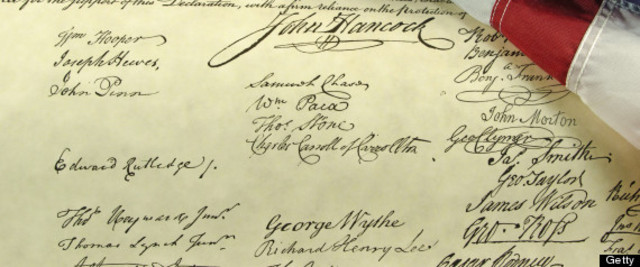 for the support of this Declaration, with a firm reliance on the protection of
John Hancock
Wm Hooper
Joseph Hewes,
John Penn
Edward Rutledge /.
Thos Heyward Junr.
Thomas Lynch Junr.
Samuel Chase
Wm. Paca
Thos. Stone
Charles Carroll of Carrollton
George Wythe
Richard Henry Lee
Rob
Benjam
Benj. Frank
John Morton
Geo Clymer
Jas. Smith
Geo. Taylor
James Wilson
Geo. Ross
Caesar Rodney
Getty